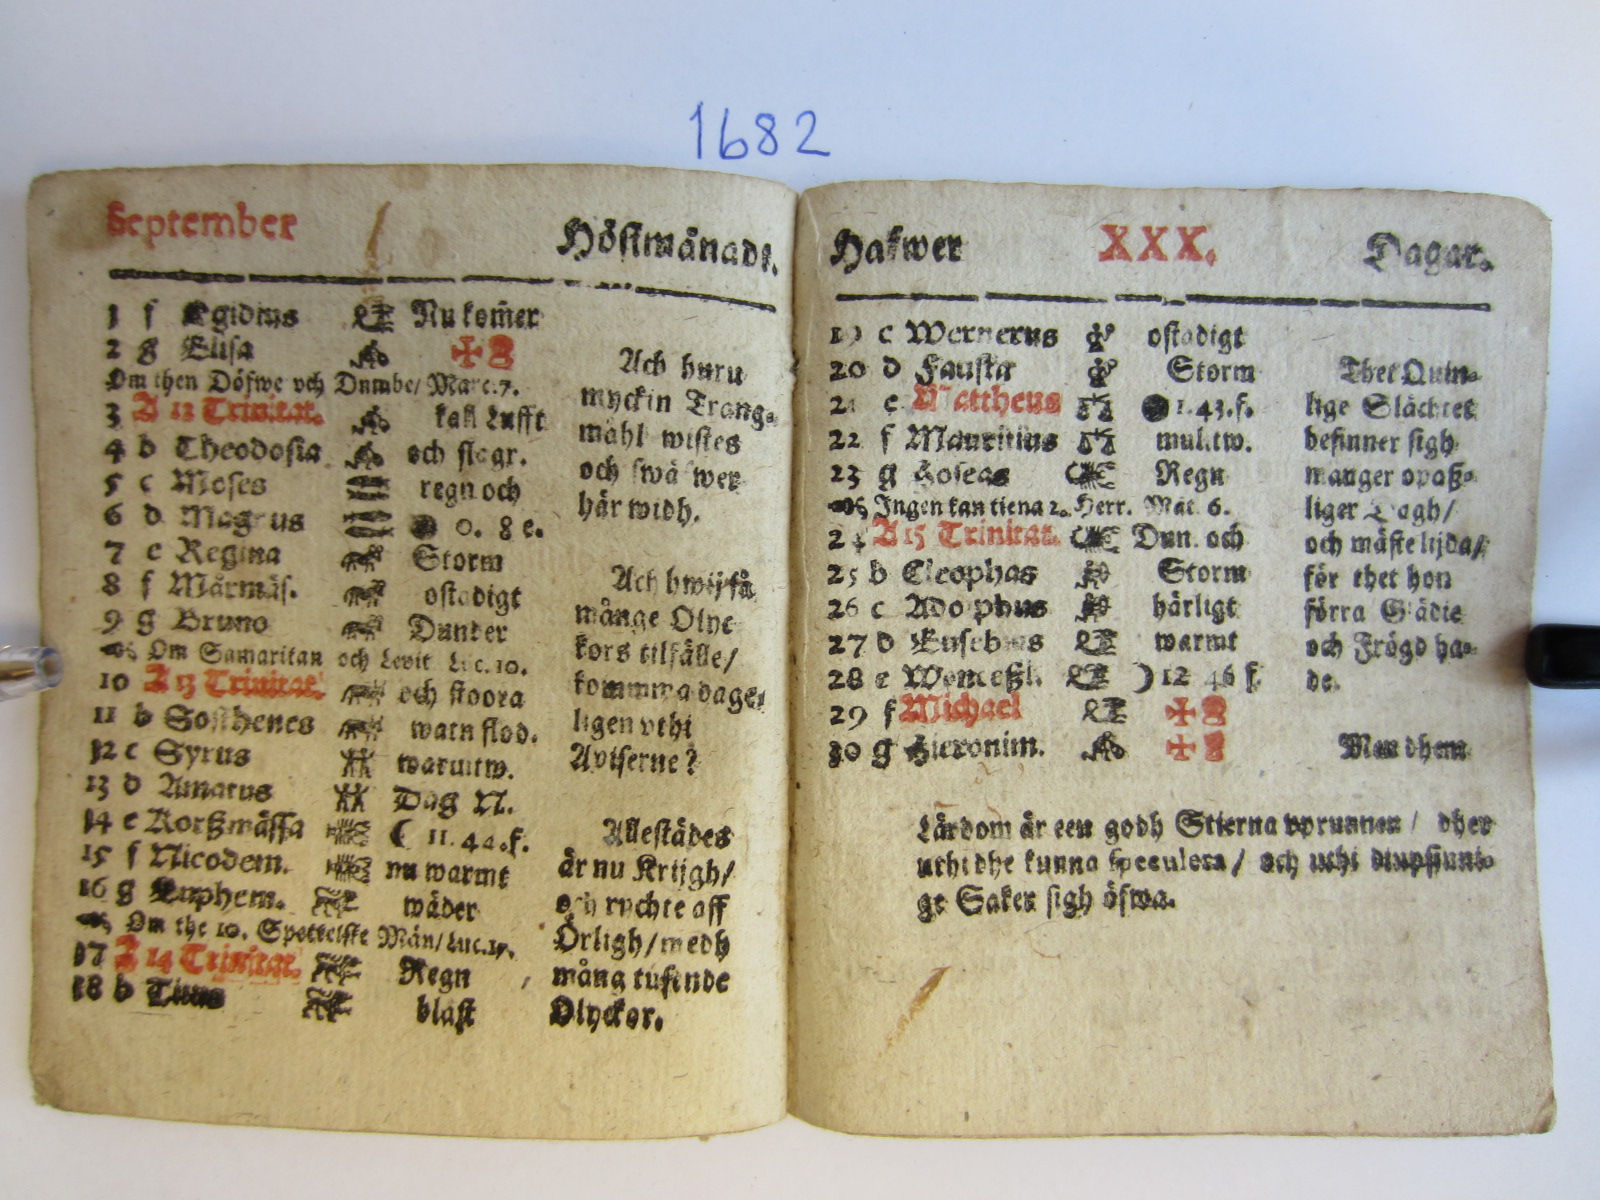 1682
September Höstmånadt.
1 f Egidius Nu kom̃er
2 g Elisa
Om then Döfwe och Dumbe/ Marc. 7.
3 A 12 Trinitat. kall Lufft
4 b Theodosia och slagr.
5 c Moses regn och
6 d Magnus 0. 8 e.
7 e Regina Storm
8 f Mårmäs. ostadigt
9 g Bruno Dunder
Om Samaritan och Levit Luc. 10.
10 A 13 Trinitat. och stoora
11 b Sosthenes watn flod.
12 c Syrus
13 d Amatus Dag N.
14 e Korßmässa 11. 42. f.
15 f Nicodem. nu warmt
16 g Euphem. wäder
Om the 10. Spetelske Män/ Luc. 17.
17 A 14 Trinitat. Regn
18 b Titus blåst
Ach huru
myckin Trang-
mahl wistes
och swå wer
här widh.
Ach hwij få
månge Olyc-
kors tilfälle/
komma dage-
ligen vthi
Aviserne?
Allestädes
är nu Krijgh/
och rychte aff
Örligh/ medh
mång tusende
Olyckor.
Hafwer XXX. Dagar.
19 c Wernerus ostadigt
20 d Fausta Storm
21 e Mattheus 1. 43. f.
22 f Mauritius mul. tw.
23 g Hoseas Regn
Ingen kan tiena 2. Herr. Mat. 6.
24 A 15 Trinitat. Dun. och
25 b Cleophas Storm
26 c Adolphus härligt
27 d Eusebius warmt
28 e Wenceßl. ) 12 46 f.
29 f Michael
30 g Hieronim.
Thet Quin-
lige Slächtet
befinner sigh
manger opaß-
liger Dagh/
och måste lijda/
för thet hon
förra Glädie
och Frögd ha-
de.
Men dhem
Lärdom är een godh Stierna vprunnen / dher
uthi dhe kunna speculera / och uthi diupsinni-
ge Saker sigh öfwa.